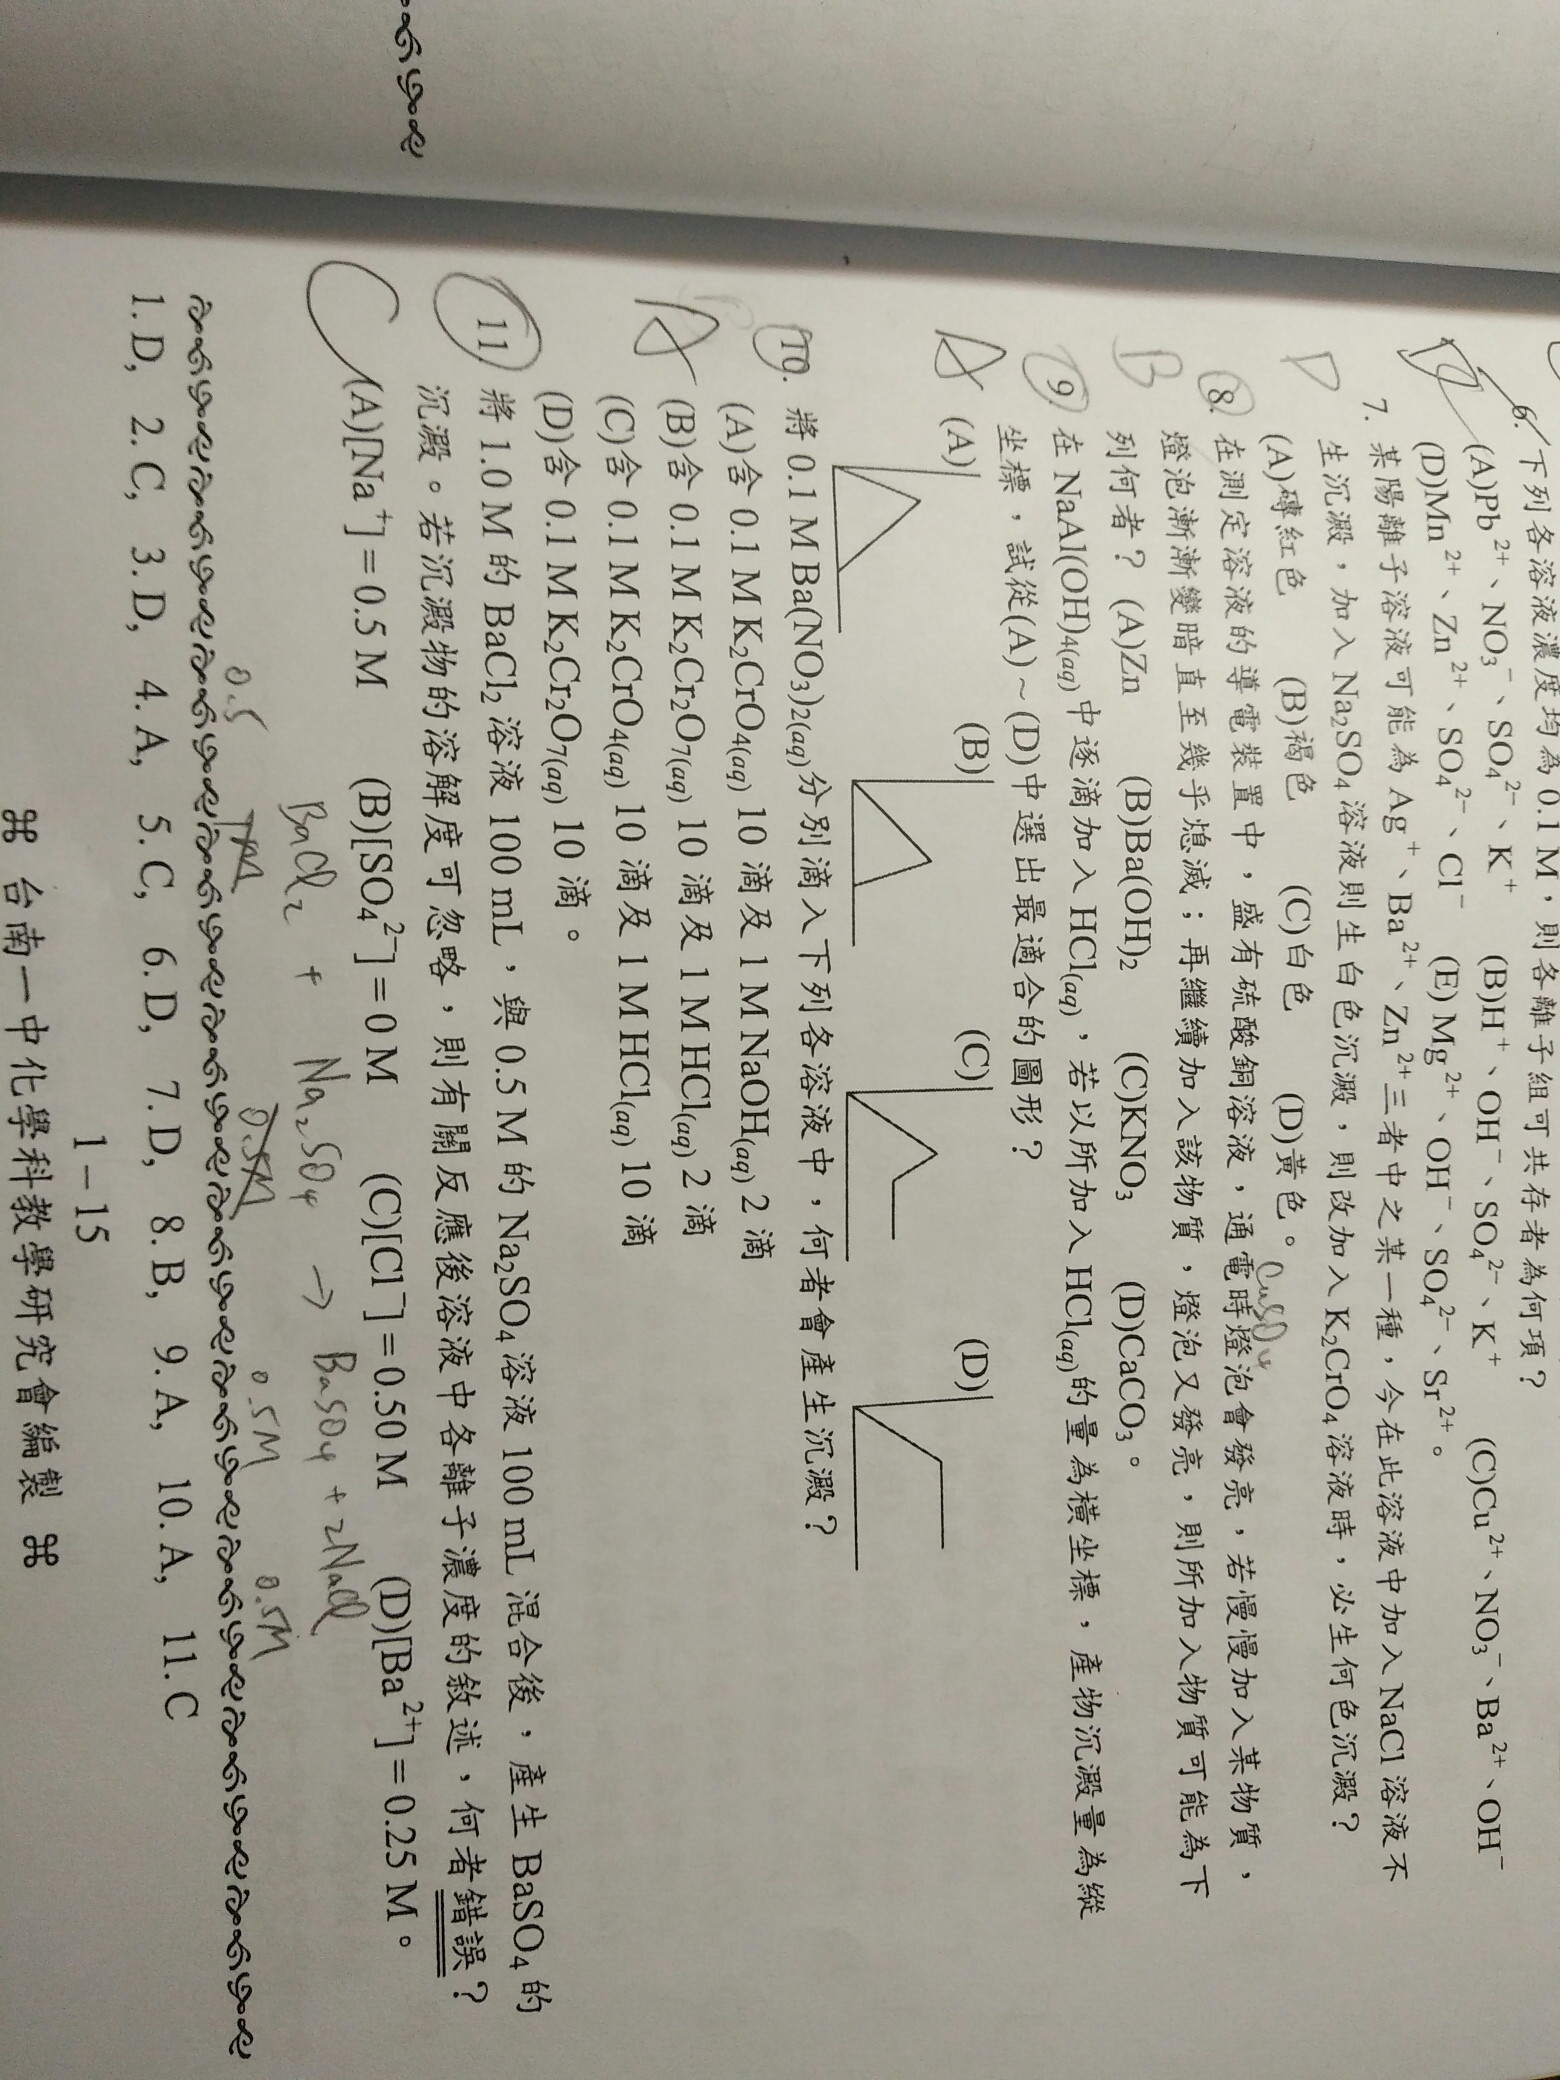 6. 下列各溶液濃度均為 0.1 M，則各離子組可共存者為何項？
(A)Pb²⁺、NO₃⁻、SO₄²⁻、K⁺ (B)H⁺、OH⁻、SO₄²⁻、K⁺ (C)Cu²⁺、NO₃⁻、Ba²⁺、OH⁻
(D)Mn²⁺、Zn²⁺、SO₄²⁻、Cl⁻ (E)Mg²⁺、OH⁻、SO₄²⁻、Sr²⁺。
7. 某陽離子溶液可能為 Ag⁺、Ba²⁺、Zn²⁺三者中之某一種，今在此溶液中加入 NaCl 溶液不
生沉澱，加入 Na₂SO₄ 溶液則生白色沉澱，則改加入 K₂CrO₄ 溶液時，必生何色沉澱？
D (A)磚紅色 (B)褐色 (C)白色 (D)黃色。
CuSO₄
8. 在測定溶液的導電裝置中，盛有硫酸銅溶液，通電時燈泡會發亮，若慢慢加入某物質，
燈泡漸漸變暗直至幾乎熄滅；再繼續加入該物質，燈泡又發亮，則所加入物質可能為下
B 列何者？ (A)Zn (B)Ba(OH)₂ (C)KNO₃ (D)CaCO₃。
9. 在 NaAl(OH)₄(aq) 中逐滴加入 HCl(aq)，若以所加入 HCl(aq)的量為橫坐標，產物沉澱量為縱
坐標，試從(A)～(D)中選出最適合的圖形？
A (A) (B) (C) (D)
10. 將 0.1 M Ba(NO₃)₂(aq)分別滴入下列各溶液中，何者會產生沉澱？
(A)含 0.1 M K₂CrO₄(aq) 10 滴及 1 M NaOH(aq) 2 滴
A (B)含 0.1 M K₂Cr₂O₇(aq) 10 滴及 1 M HCl(aq) 2 滴
(C)含 0.1 M K₂CrO₄(aq) 10 滴及 1 M HCl(aq) 10 滴
(D)含 0.1 M K₂Cr₂O₇(aq) 10 滴。
11 將 1.0 M 的 BaCl₂ 溶液 100 mL，與 0.5 M 的 Na₂SO₄ 溶液 100 mL 混合後，產生 BaSO₄ 的
沉澱。若沉澱物的溶解度可忽略，則有關反應後溶液中各離子濃度的敘述，何者錯誤？
C (A)[Na⁺]=0.5 M (B)[SO₄²⁻]=0 M (C)[Cl⁻]=0.50 M (D)[Ba²⁺]=0.25 M。
BaCl₂ + Na₂SO₄ → BaSO₄ + 2NaCl
0.5 1M 0.5M 0.5M 0.5M
1. D, 2. C, 3. D, 4. A, 5. C, 6. D, 7. D, 8. B, 9. A, 10. A, 11. C
1－15
⌘ 台南一中化學科教學研究會編製 ⌘